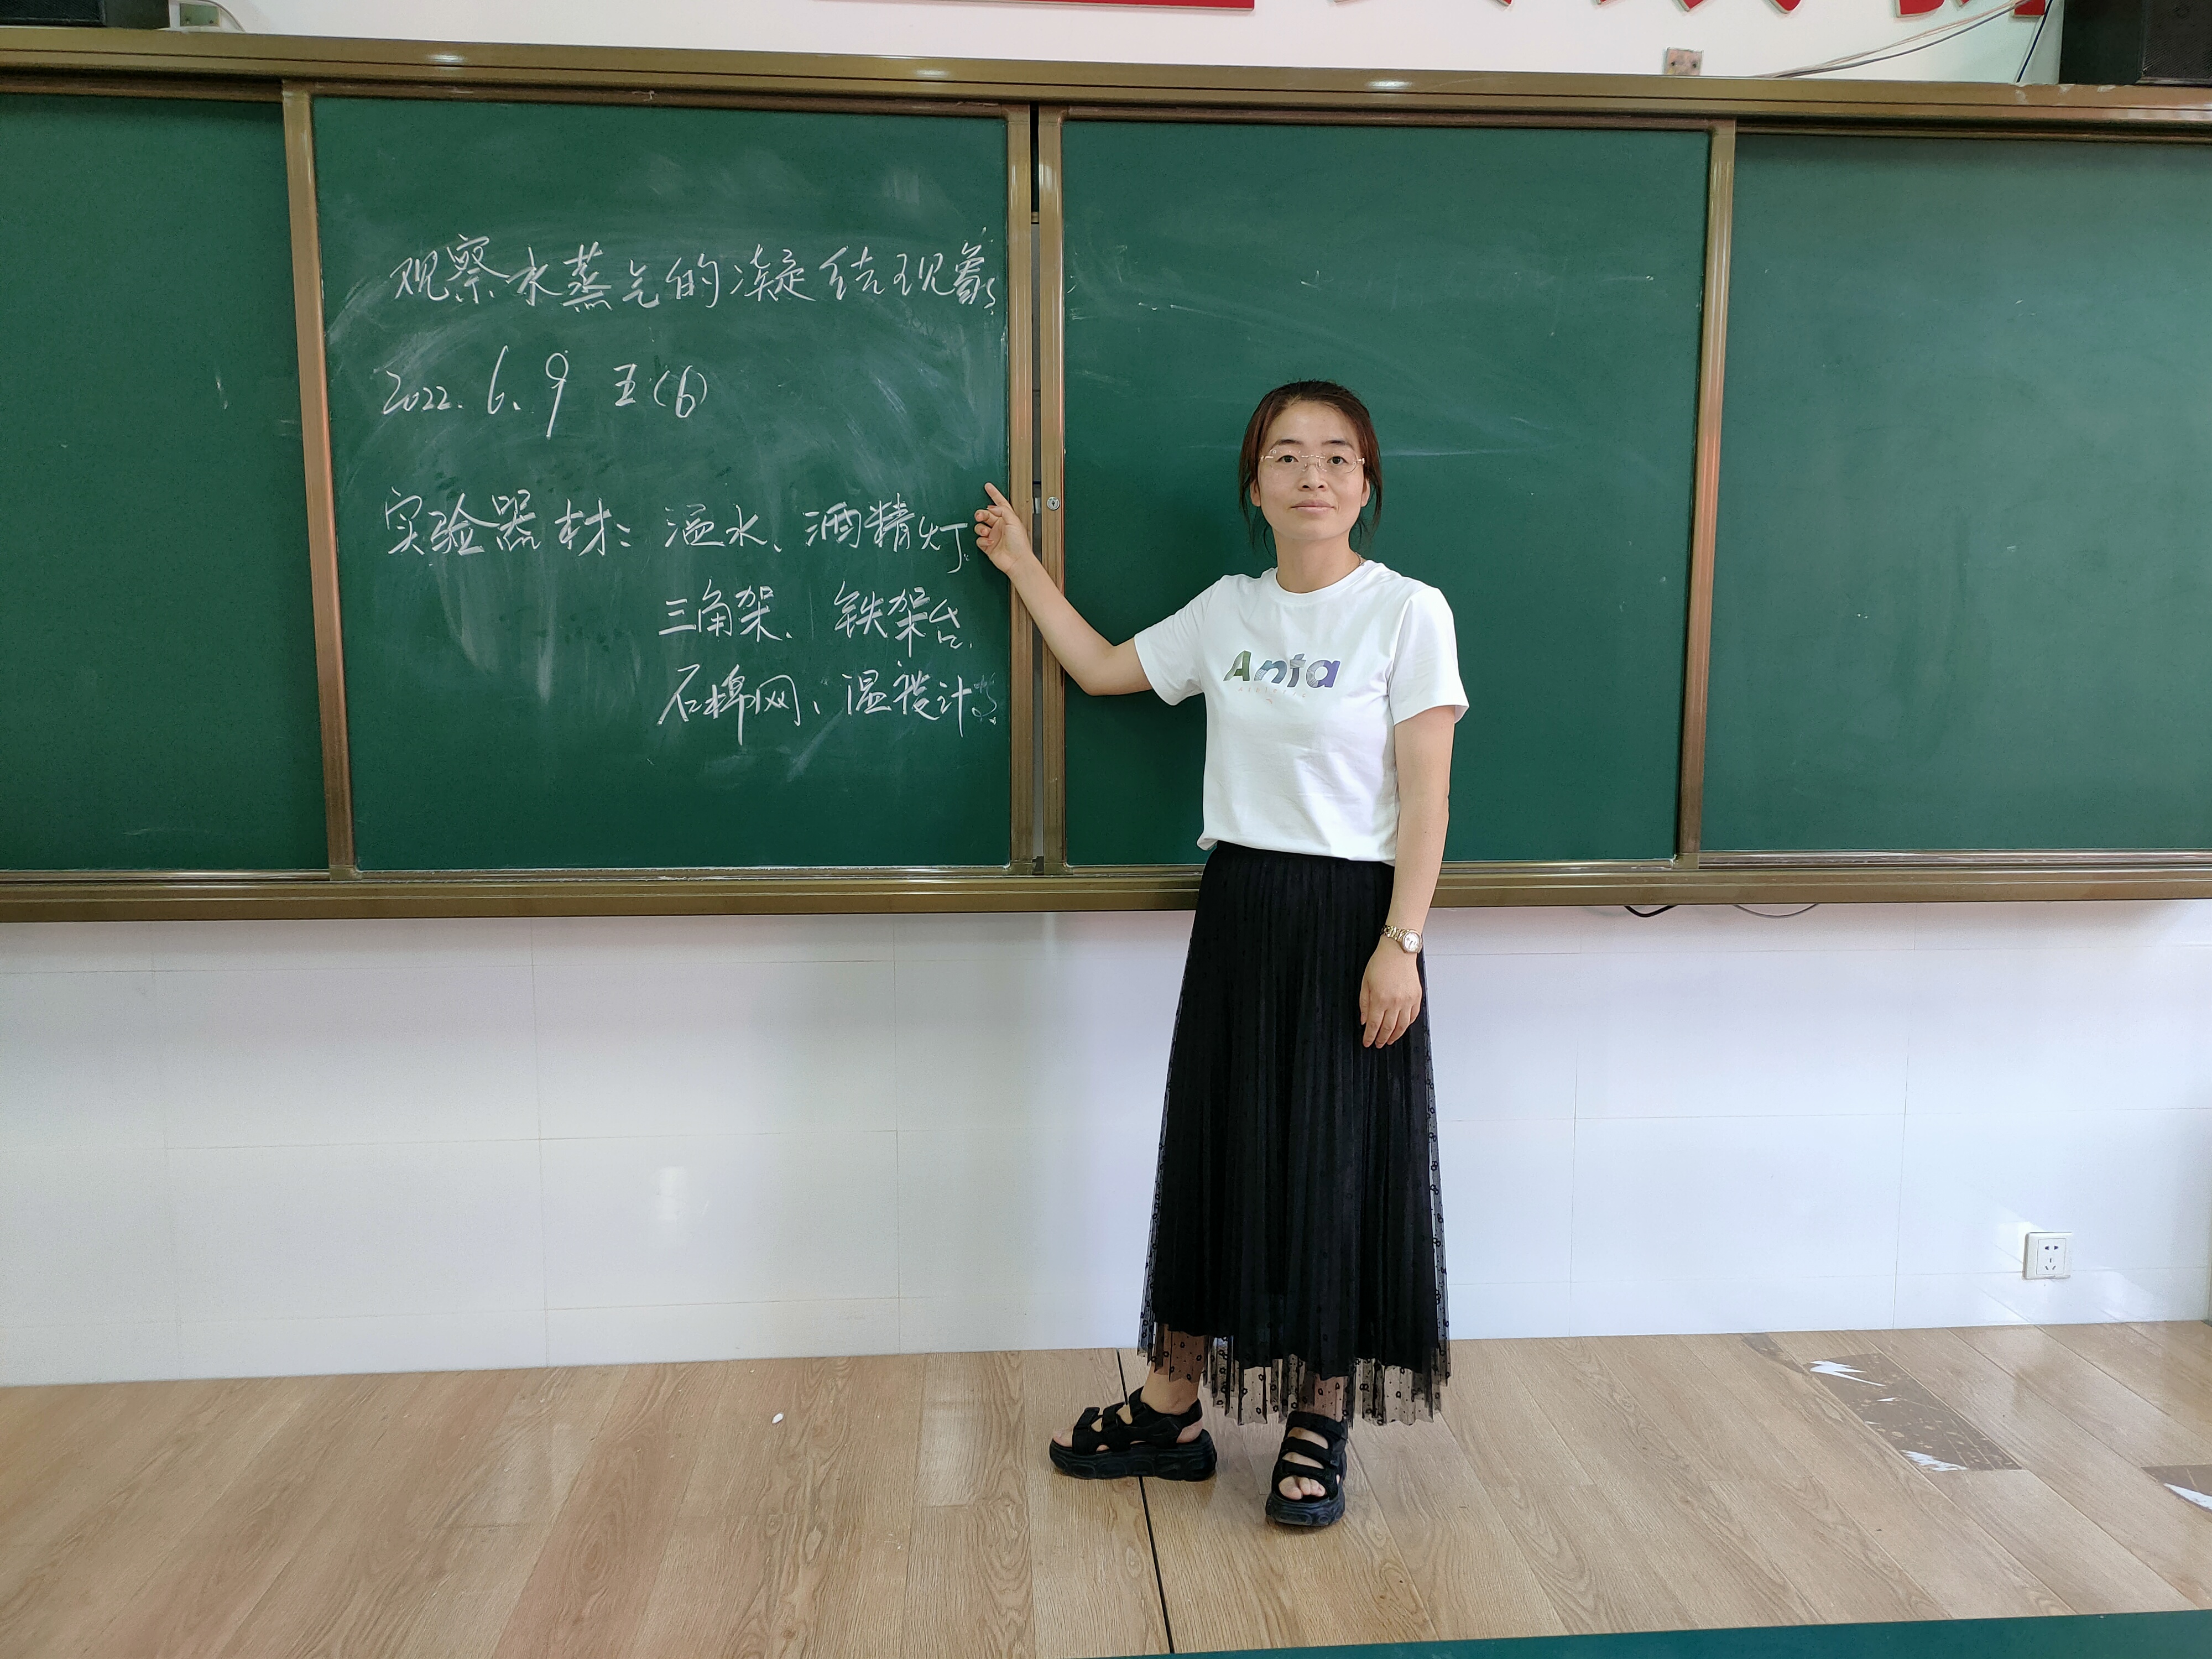 观察水蒸气的凝结现象
2022.6.9 五(6)
实验器材：温水、酒精灯
三角架、铁架台
石棉网、温度计
Anta